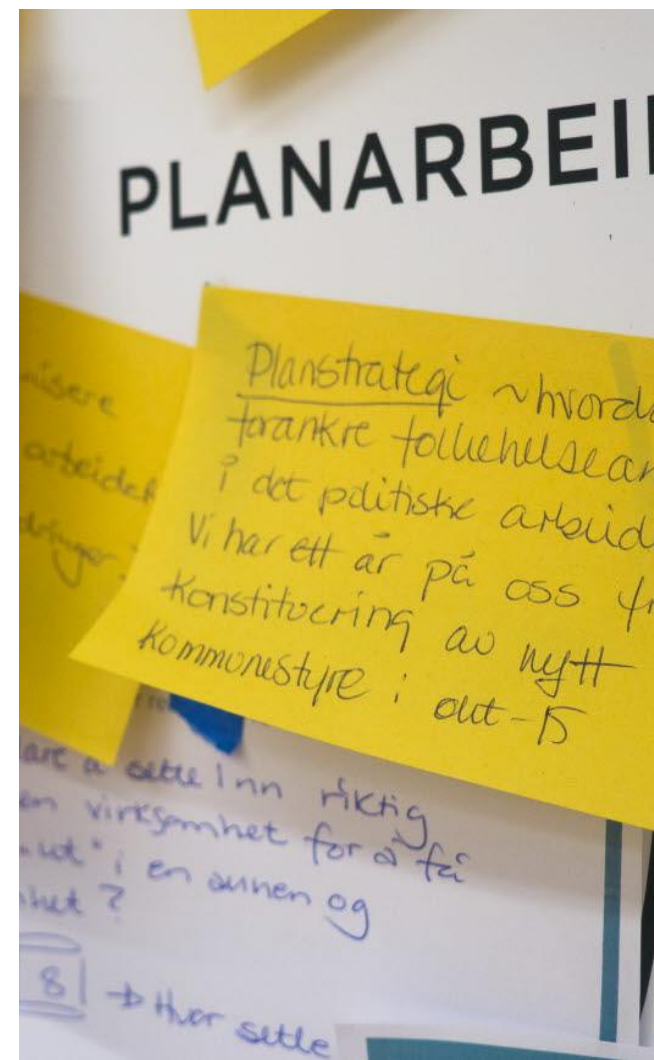 PLANARBEI
Planstrategi ~ hvorda
forankre folkehelsear
i det politiske arbeid
Vi har ett år på oss fr
Konstituering av nytt
Kommunestyre i okt-15
nisere
arbeidet
dringer?
are å sette inn riktig
en virksomhet for å få
"ut" i en annen og
het?
8 → Hvor sette